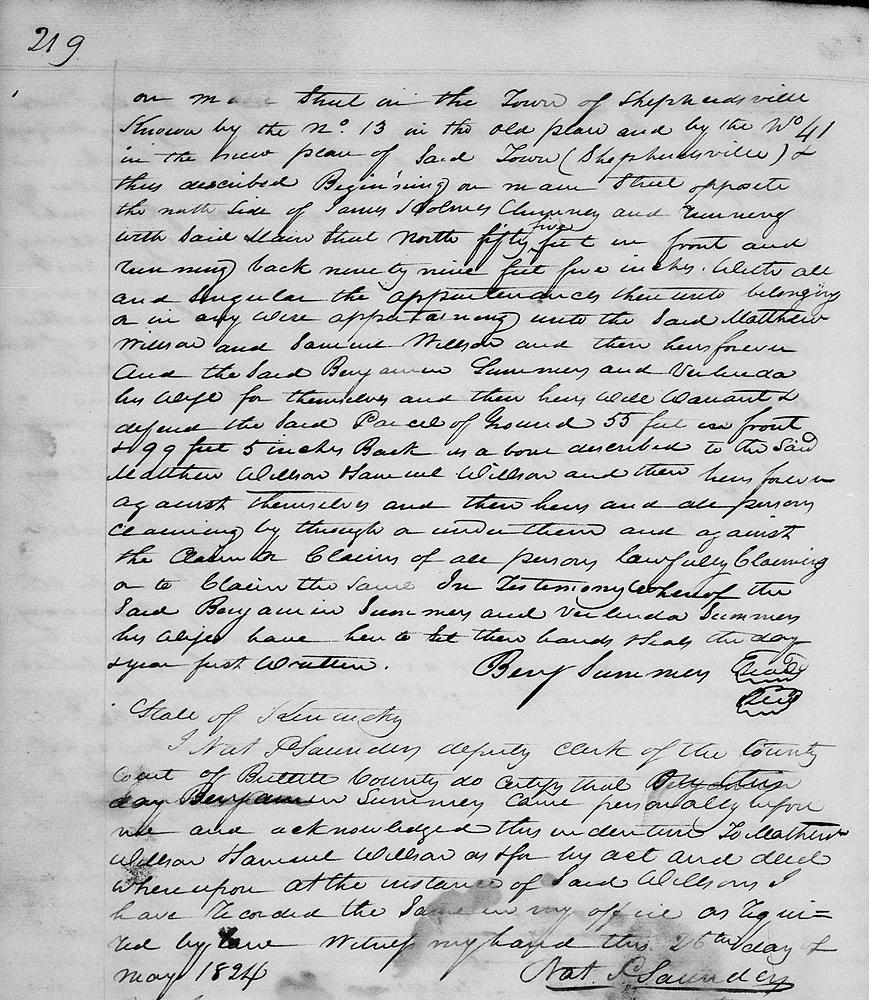 219
on main Street in the Town of Shepherdsville
Known by the No. 13 in the old plan and by the No 41
in the new plan of Said Town (Shepherdsville) &
thus described Begin'ning on main Street opposite
the north Side of James Holmes Chimney and running
with Said Main Street North fifty five feet in front and
running back ninety nine feet five inches. With all
and Singular the appurtenances thereunto belonging
or in any wise appertaining unto the Said Matthew
Willson and Samuel Willson and their heirs forever
And the Said Benjamin Summers and Verlinda
his Wife for themselves and their heirs Will Warrant &
defend the Said Parcel of Ground 55 feet in front
& 99 feet 5 inches Back as above described to the Said
Matthew Willson & Samuel Willson and their heirs forever
against themselves and their heirs and all persons
Claiming by through or under them and against
the Claim or Claims of all persons lawfully Claiming
or to Claim the Same In Testimony Whereof the
Said Benjamin Summers and Verlinda Summers
his Wife have here to Set their hands & Seals the day
& year first Written.
Benj Summers Seal
Seal
State of Kentucky
I Nat P Saunders deputy clerk of the County
Court of Bullitt County do Certify that this
day Benjamin Summers Came personally before
me and acknowledged this indenture To Mathew
Willson & Samuel Willson as & for his act and deed
Whereupon at the instance of Said Willsons I
have recorded the Same in my office as requi=
red by law Witness my hand this 26th day of
May 1824
Nat. P Saunders